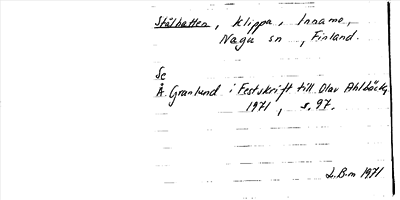 Stålhatten, klippa, Innamo,
Nagu sn, Finland.
Se
Å. Granlund i Festskrift till Olav Ahlbäck,
1971, s. 97.
L.B-m 1971